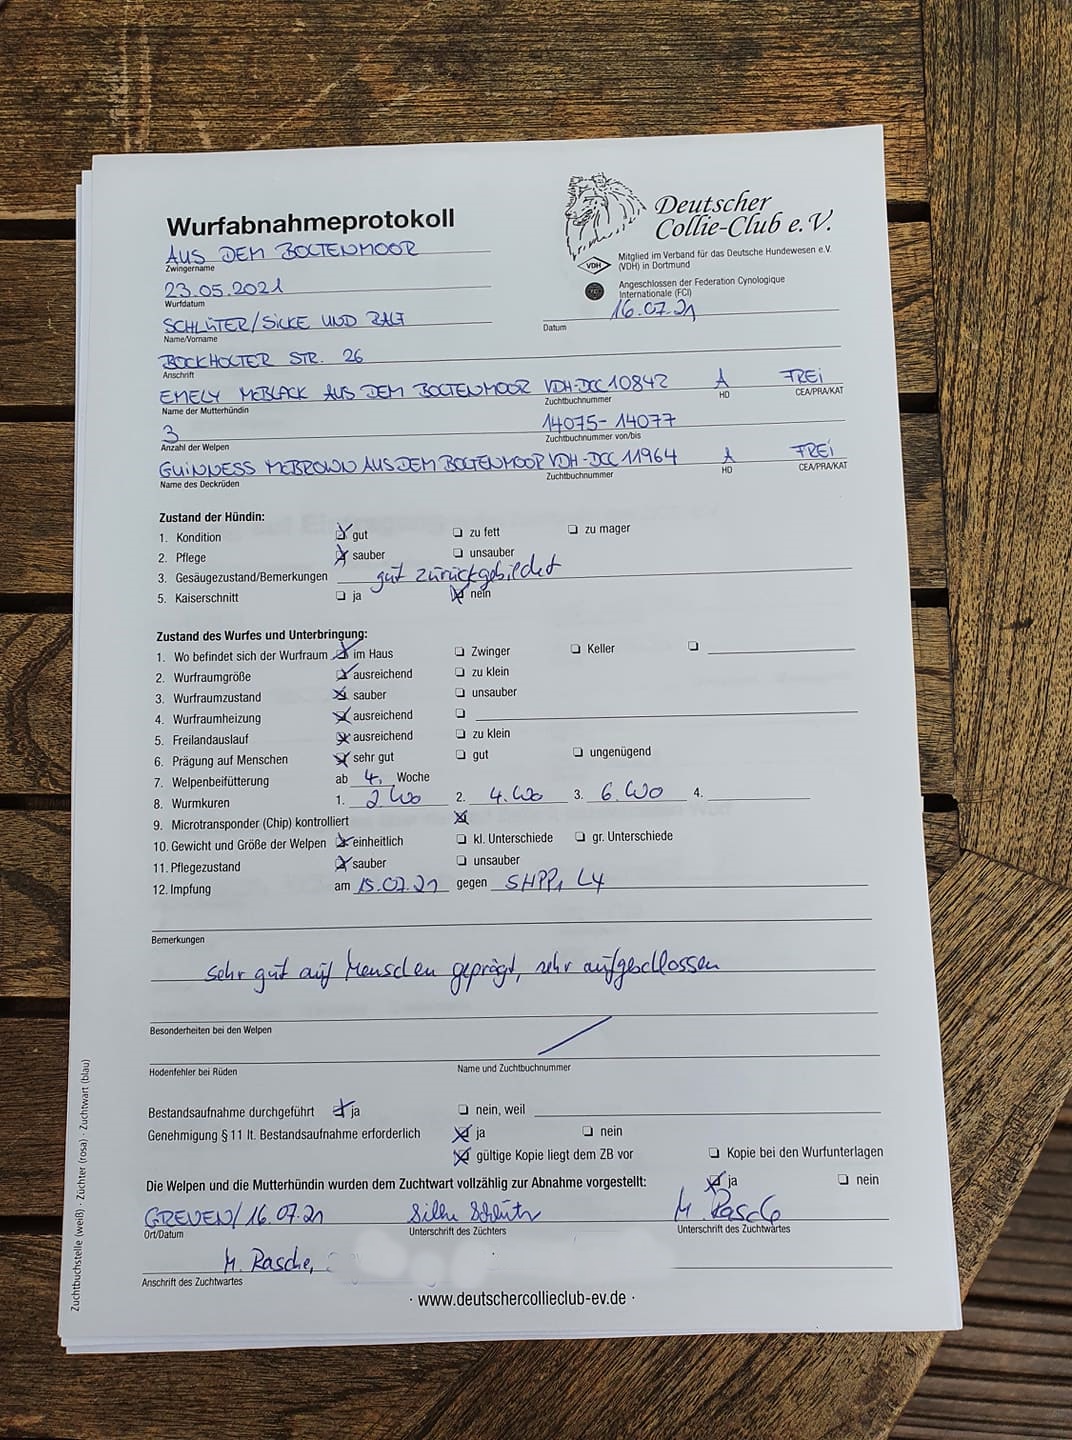 Wurfabnahmeprotokoll
Deutscher
Collie-Club e.V.
VDH
Mitglied im Verband für das Deutsche Hundewesen e.V.
(VDH) in Dortmund
FCI
Angeschlossen der Federation Cynologique
Internationale (FCI)
AUS DEM BOLTENMOOR
Zwingername
23.05.2021
Wurfdatum
16.07.21
Datum
SCHLÜTER/SILKE UND RALF
Name/Vorname
BOCKHOLTER STR. 26
Anschrift
EMELY MCBLACK AUS DEM BOLTENMOOR VDH-DCC 10842 A FREI
Name der Mutterhündin Zuchtbuchnummer HD CEA/PRA/KAT
3 14075-14077
Anzahl der Welpen Zuchtbuchnummer von/bis
GUINNESS MCBROWN AUS DEM BOLTENMOOR VDH-DCC 11964 A FREI
Name des Deckrüden Zuchtbuchnummer HD CEA/PRA/KAT
Zustand der Hündin:
1. Kondition ☒ gut ☐ zu fett ☐ zu mager
2. Pflege ☒ sauber ☐ unsauber
3. Gesäugezustand/Bemerkungen gut zurückgebildet
5. Kaiserschnitt ☐ ja ☒ nein
Zustand des Wurfes und Unterbringung:
1. Wo befindet sich der Wurfraum ☒ im Haus ☐ Zwinger ☐ Keller ☐
2. Wurfraumgröße ☒ ausreichend ☐ zu klein
3. Wurfraumzustand ☒ sauber ☐ unsauber
4. Wurfraumheizung ☒ ausreichend ☐
5. Freilandauslauf ☒ ausreichend ☐ zu klein
6. Prägung auf Menschen ☒ sehr gut ☐ gut ☐ ungenügend
7. Welpenbeifütterung ab 4. Woche
8. Wurmkuren 1. 2. Wo 2. 4. Wo 3. 6. Wo 4.
9. Microtransponder (Chip) kontrolliert ☒
10. Gewicht und Größe der Welpen ☒ einheitlich ☐ kl. Unterschiede ☐ gr. Unterschiede
11. Pflegezustand ☒ sauber ☐ unsauber
12. Impfung am 15.07.21 gegen SHPPi L4
Bemerkungen
sehr gut auf Menschen geprägt, sehr aufgeschlossen
Besonderheiten bei den Welpen
Hodenfehler bei Rüden Name und Zuchtbuchnummer
Bestandsaufnahme durchgeführt ☒ ja ☐ nein, weil
Genehmigung § 11 lt. Bestandsaufnahme erforderlich ☒ ja ☐ nein
☒ gültige Kopie liegt dem ZB vor ☐ Kopie bei den Wurfunterlagen
Die Welpen und die Mutterhündin wurden dem Zuchtwart vollzählig zur Abnahme vorgestellt: ☒ ja ☐ nein
GREVEN/16.07.21 Silke Schlüter M. Rasche
Ort/Datum Unterschrift des Züchters Unterschrift des Zuchtwartes
M. Rasche,
Anschrift des Zuchtwartes
· www.deutschercollieclub-ev.de ·
Zuchtbuchstelle (weiß) · Züchter (rosa) · Zuchtwart (blau)